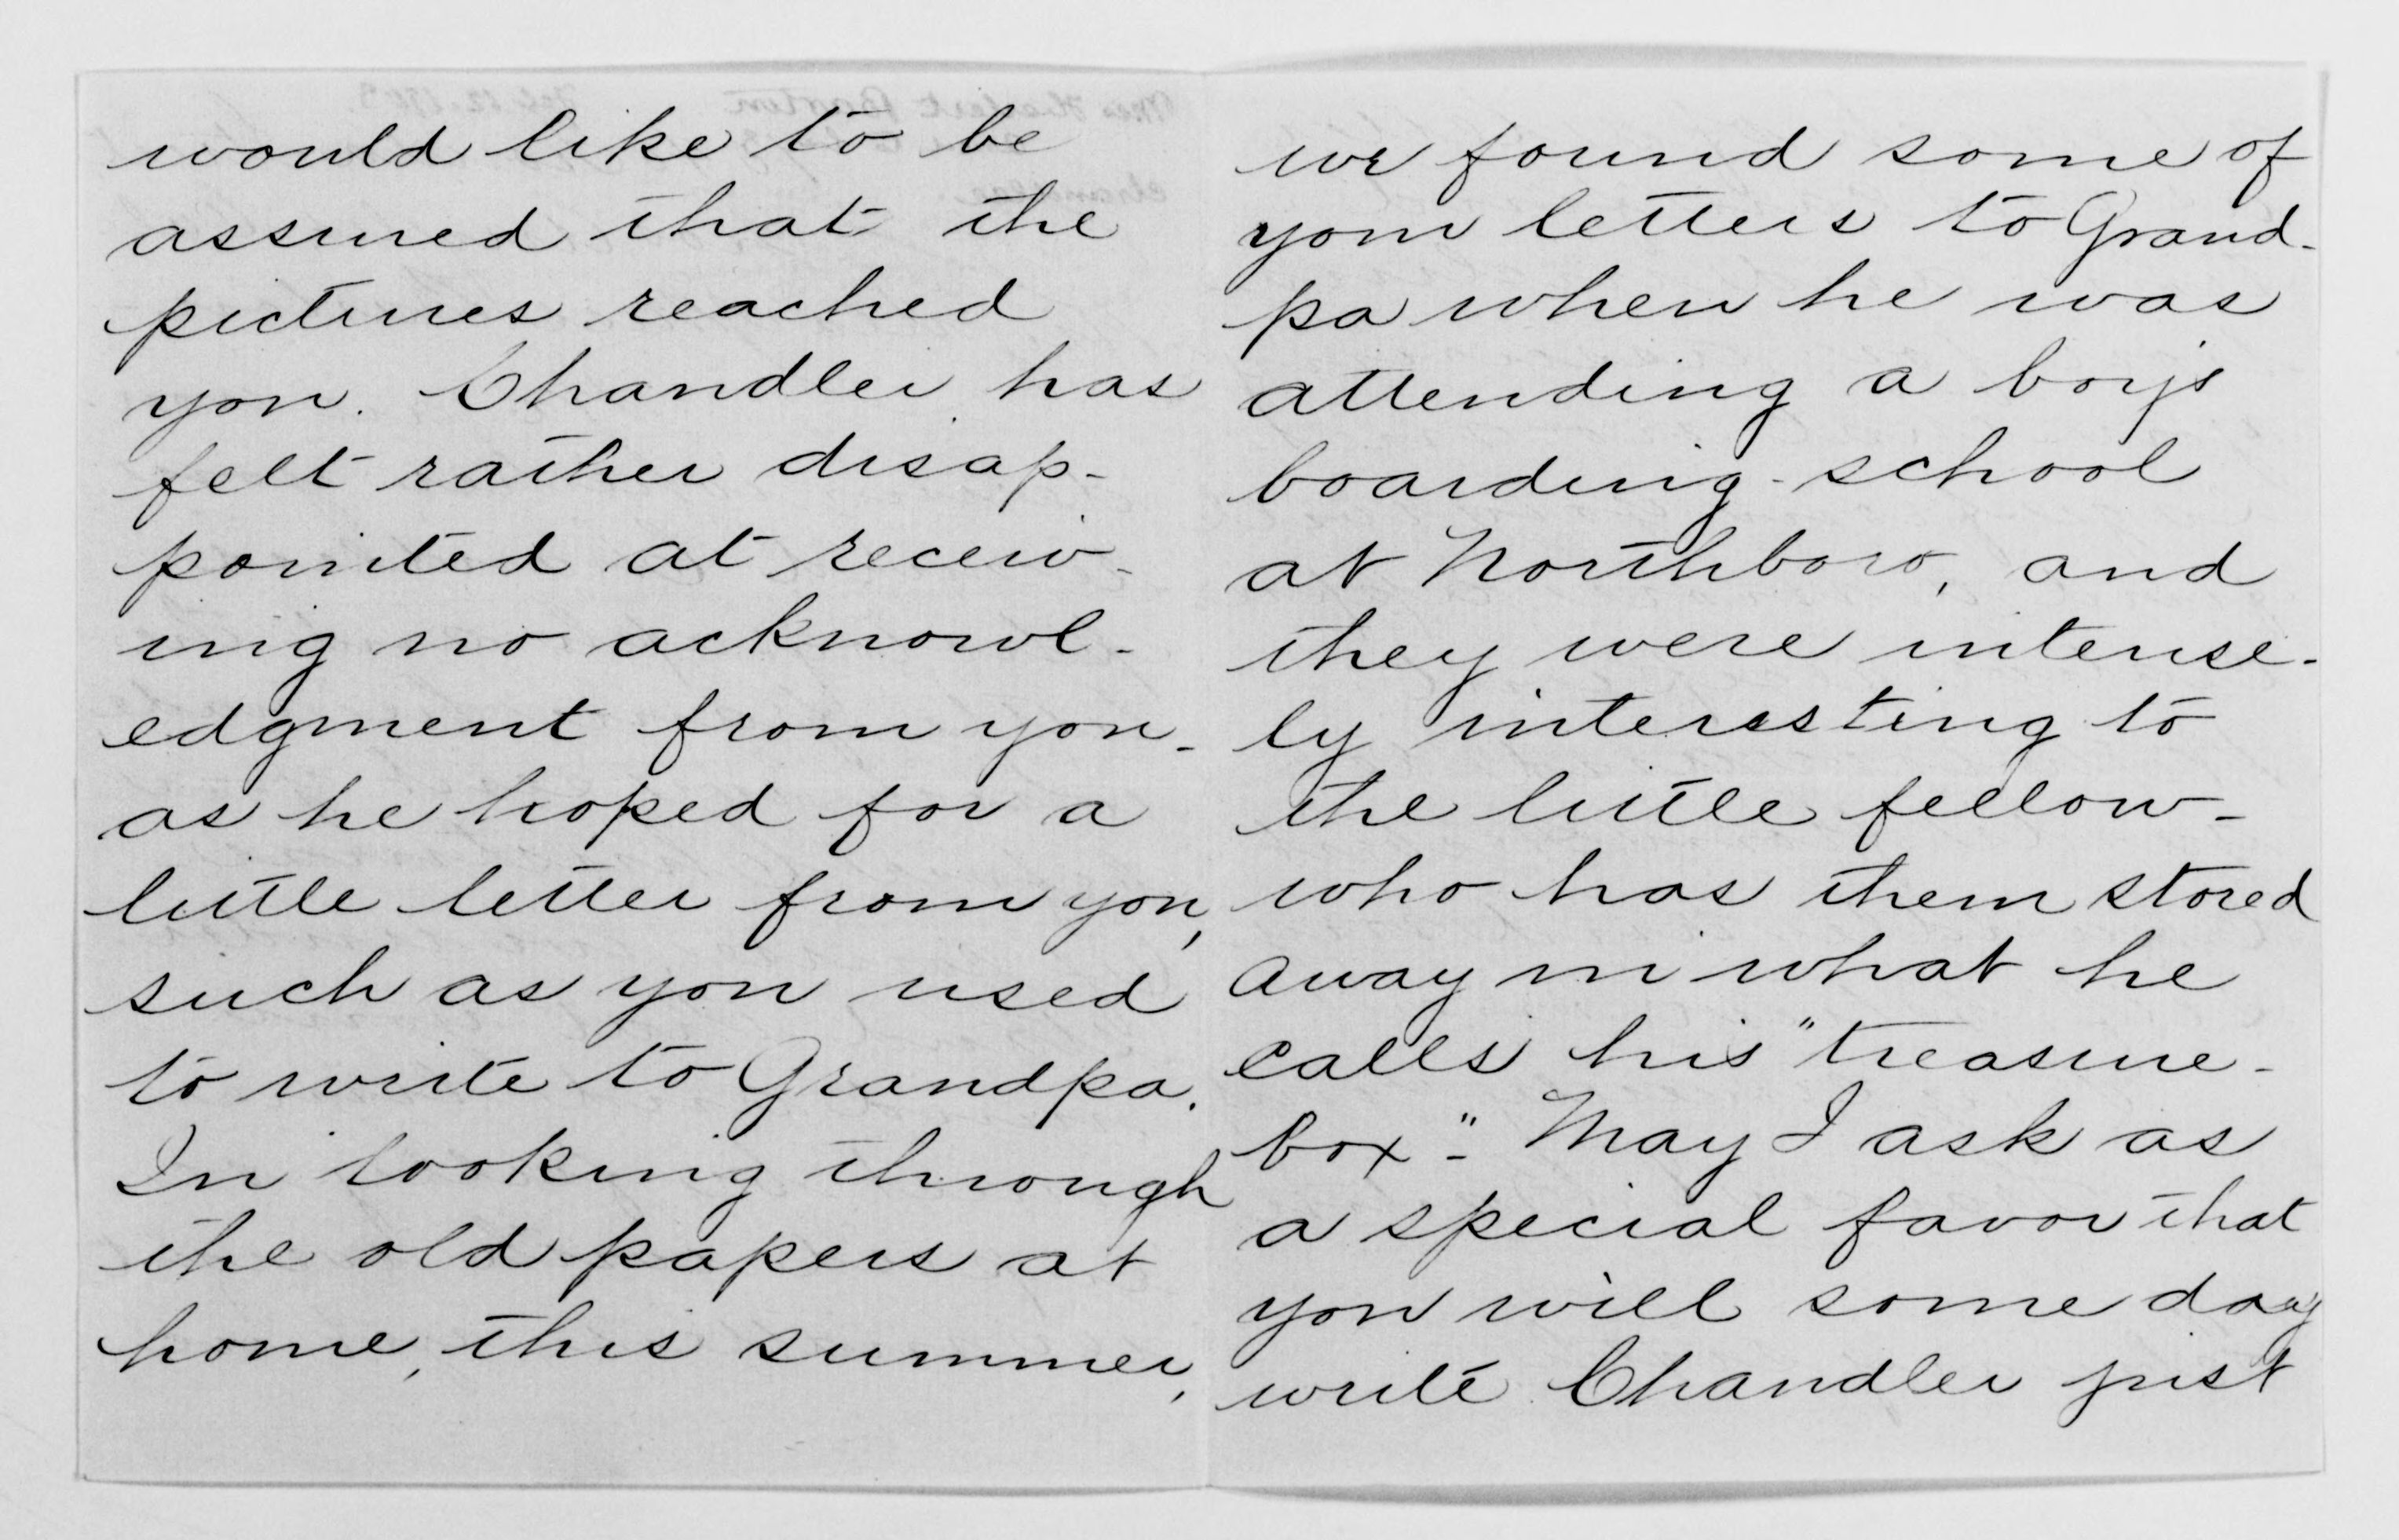 would like to be
assured that the
pictures reached
you. Chandler has
felt rather disap-
pointed at receiv-
ing no acknowl-
edgment from you -
as he hoped for a
little letter from you,
such as you used
to write to Grandpa.
In looking through
the old papers at
home, this summer,
we found some of
your letters to Grand-
pa when he was
attending a boy's
boarding-school
at Northboro, and
they were intense-
ly interesting to
the little fellow -
who has them stored
away in what he
calls his "treasure-
box" - May I ask as
a special favor that
you will some day
write Chandler just